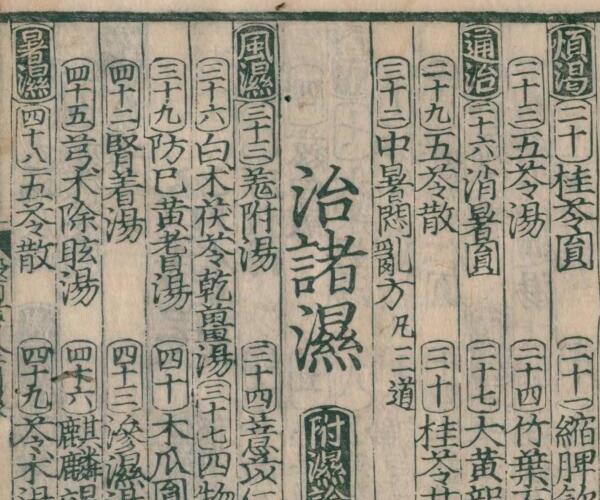 煩渴 二十 桂苓圓 二十一 縮脾
二十三 五苓湯 二十四 竹葉
通治 二十六 消暑圓 二十七 大黃
二十九 五苓散 三十 桂苓
三十二 中暑悶亂方 凡三道
治諸濕 附濕論
風濕 三十三 羗附湯 三十四 薏苡
三十六 白术茯苓乾薑湯 三十七 四物
三十九 防巳黃耆湯 四十 木瓜圓
四十二 腎着湯 四十三 滲濕湯
四十五 芎术除眩湯 四十六 麒麟
暑濕 四十八 五苓散 四十九 苓术湯